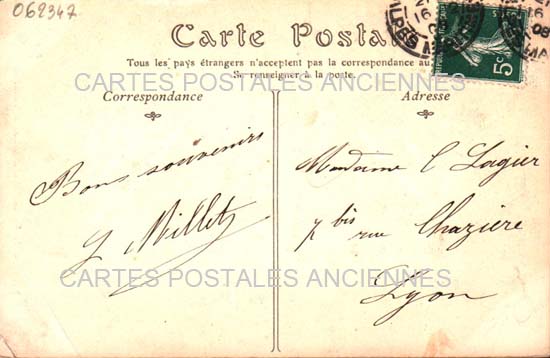 062347
Carte Postale
Tous les pays étrangers n'acceptent pas la correspondance au
Se renseigner à la poste.
CARTES POSTALES ANCIENNES
Correspondance
Adresse
Bons souvenirs
J Millet
Madame C Lagier
7 bis rue Chazière
Lyon
CARTES POSTALES ANCIENNES
5c
16
08